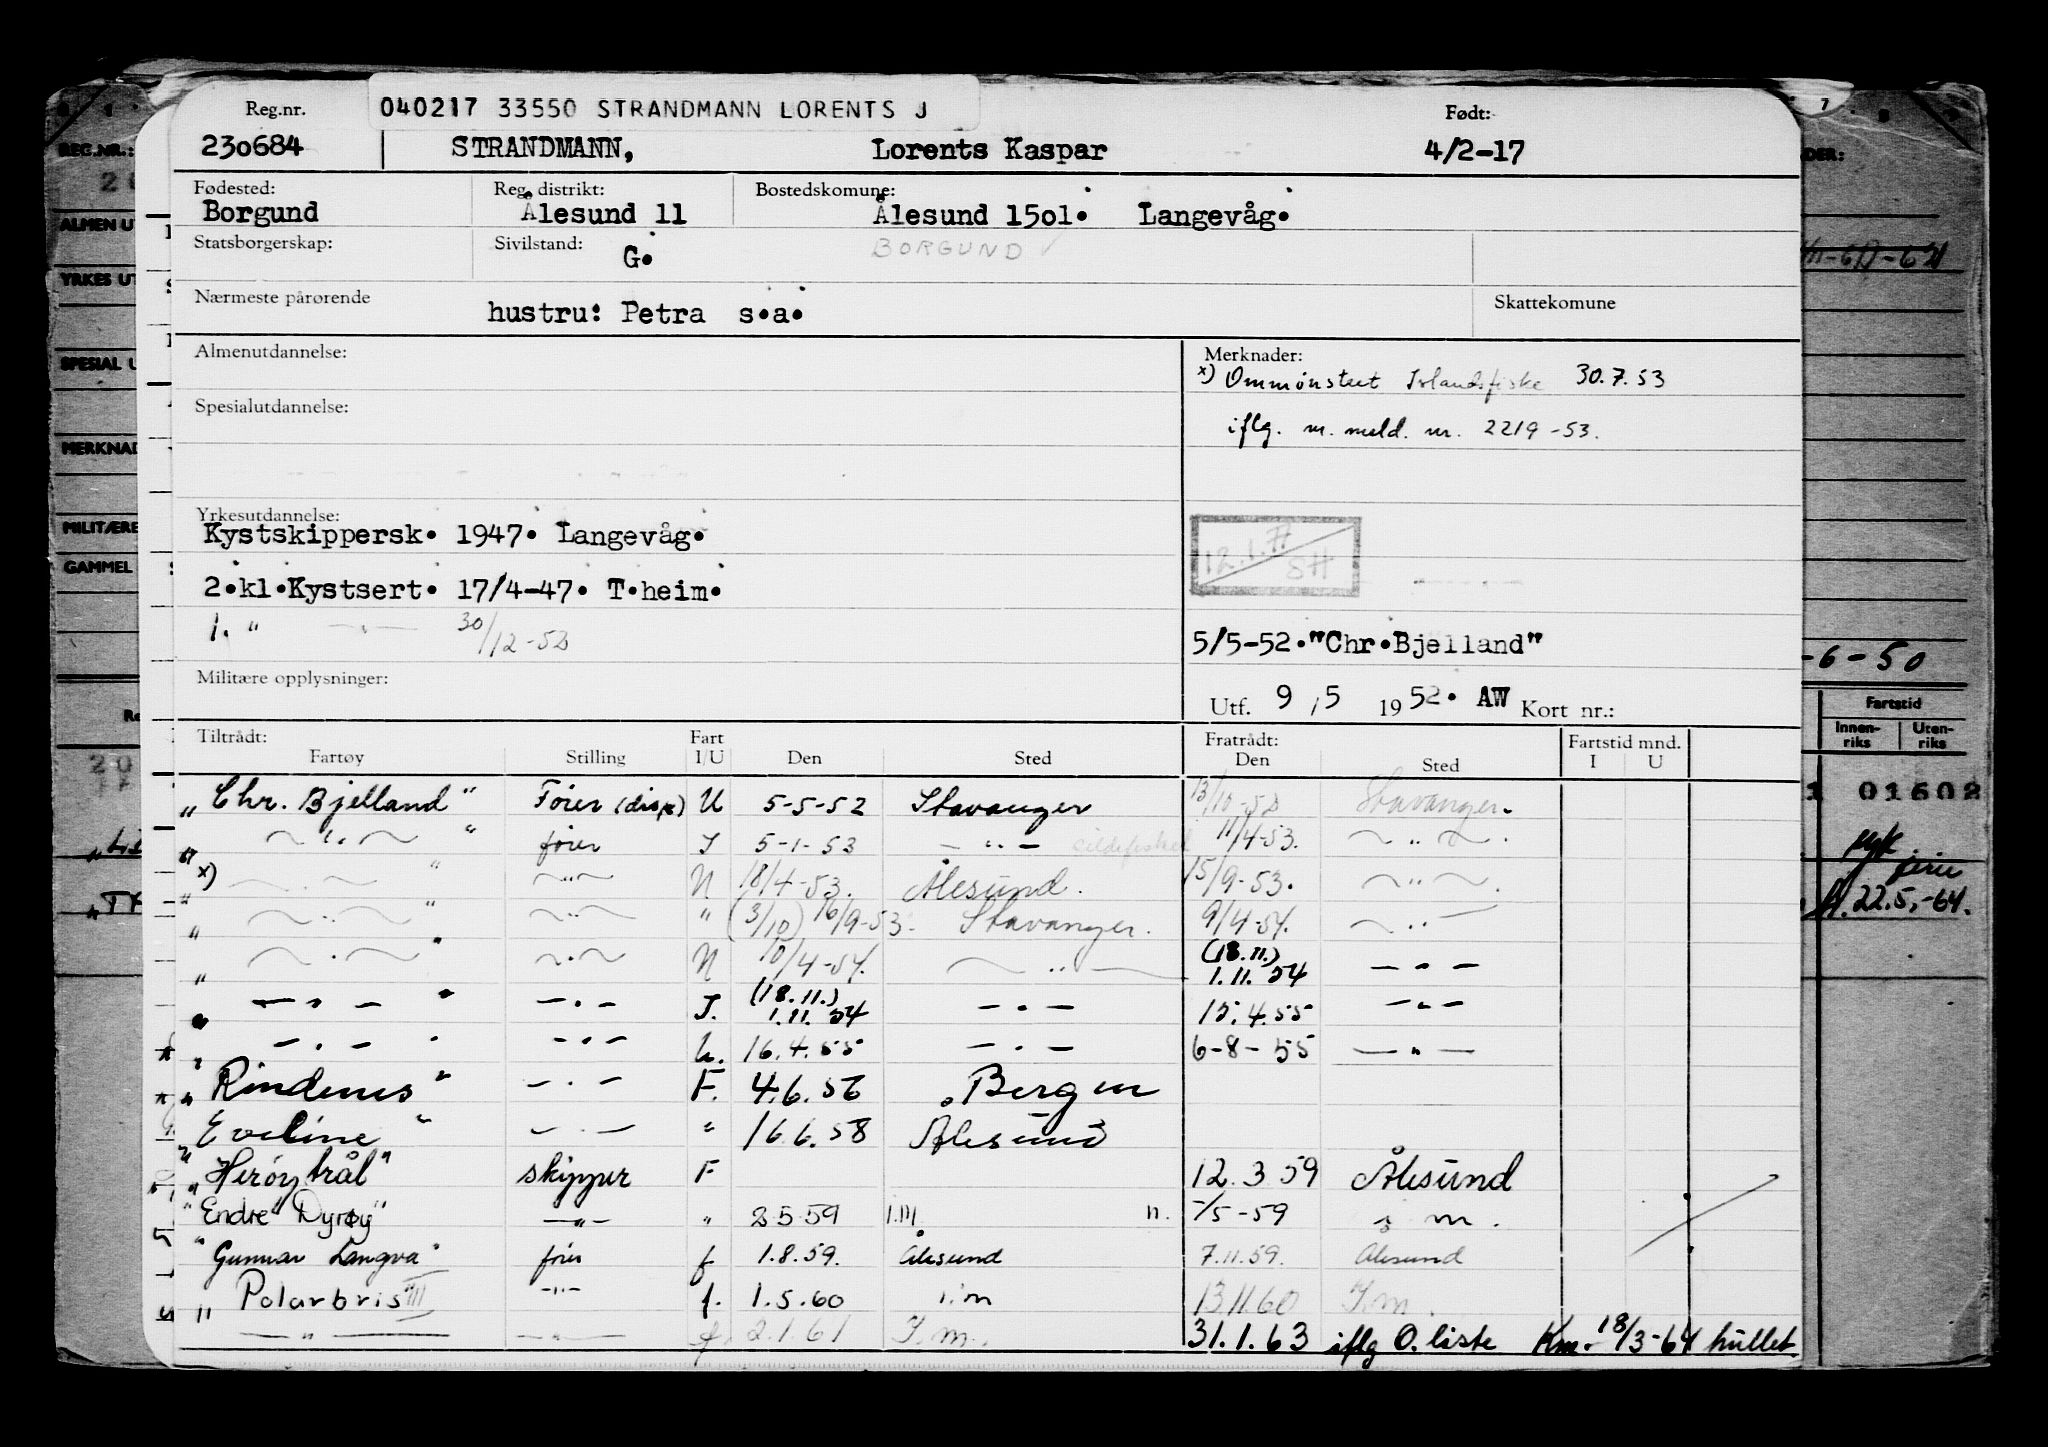 Reg.nr. 040217 33550 STRANDMANN LORENTS J Født:
230684 STRANDMANN, Lorents Kaspar 4/2-17
Fødested: Reg. distrikt: Bostedskomune:
Borgund Ålesund 11 Ålesund 15o1. Langevåg.
Statsborgerskap: Sivilstand: G. BORGUND
Nærmeste pårørende hustru: Petra s.a. Skattekomune
Almenutdannelse: Merknader:
x) Ommønstret Islandsfiske 30.7.53
Spesialutdannelse: iflg. m. meld. nr. 2219-53.
Yrkesutdannelse:
Kystskippersk. 1947. Langevåg.
12.1.77 SH
2.kl.Kystsert. 17/4-47. T.heim.
1. " — " — 30/12-52
5/5-52."Chr.Bjelland"
Militære opplysninger:
Utf. 9 / 5 1952. AW Kort nr.:
Tiltrådt: Fart Fratrådt: Fartstid mnd.
Fartøy Stilling I/U Den Sted Den Sted I U
"Chr. Bjelland" Fører (disp) U 5-5-52 Stavanger 13/10-52 Stavanger.
" — " — " fører I 5-1-53 — " — sildefisket 11/4-53. — " —
x) " — " — " — " — U 18/4-53. Ålesund. 15/9-53. — " —
" — " — " — " — " (3/10) 16/9-53. Stavanger. 9/4-54. — " —
" — " — " — " — U 10/4-54. — " — (18.11.) 1.11.54 — " —
" — " — " — " — I. (18.11.) 1.11.54 — " — 15.4.55 — " —
" — " — " — " — U. 16.4.55 — " — 6-8-55 — " —
"Rindenes" — " — F. 4.6.56 Bergen
"Eveline" — " — " 16.6.58 Ålesund
"Herøytrål" skipper F 12.3 59 Ålesund
"Endre Dyrøy" — " — " 2 5 59 -/5-59 i m.
"Gunnar Langva" fører f 1.8.59. Ålesund 7.11.59. Ålesund
"Polarbris" III — " — f. 1.5.60 i.m 13.11.60 I.m.
— " — — " — f. 2.1.61 I.m. 31.1.63 iflg O.liste Km. 18/3-64 hullet.
REG.NR.:
ALMEN UT
YRKES UT
SPESIAL U
MERKNAD
MILITÆRE
GAMMEL
-6-50
Fartstid
Innen-riks Uten-riks
01602
22.5.-64.